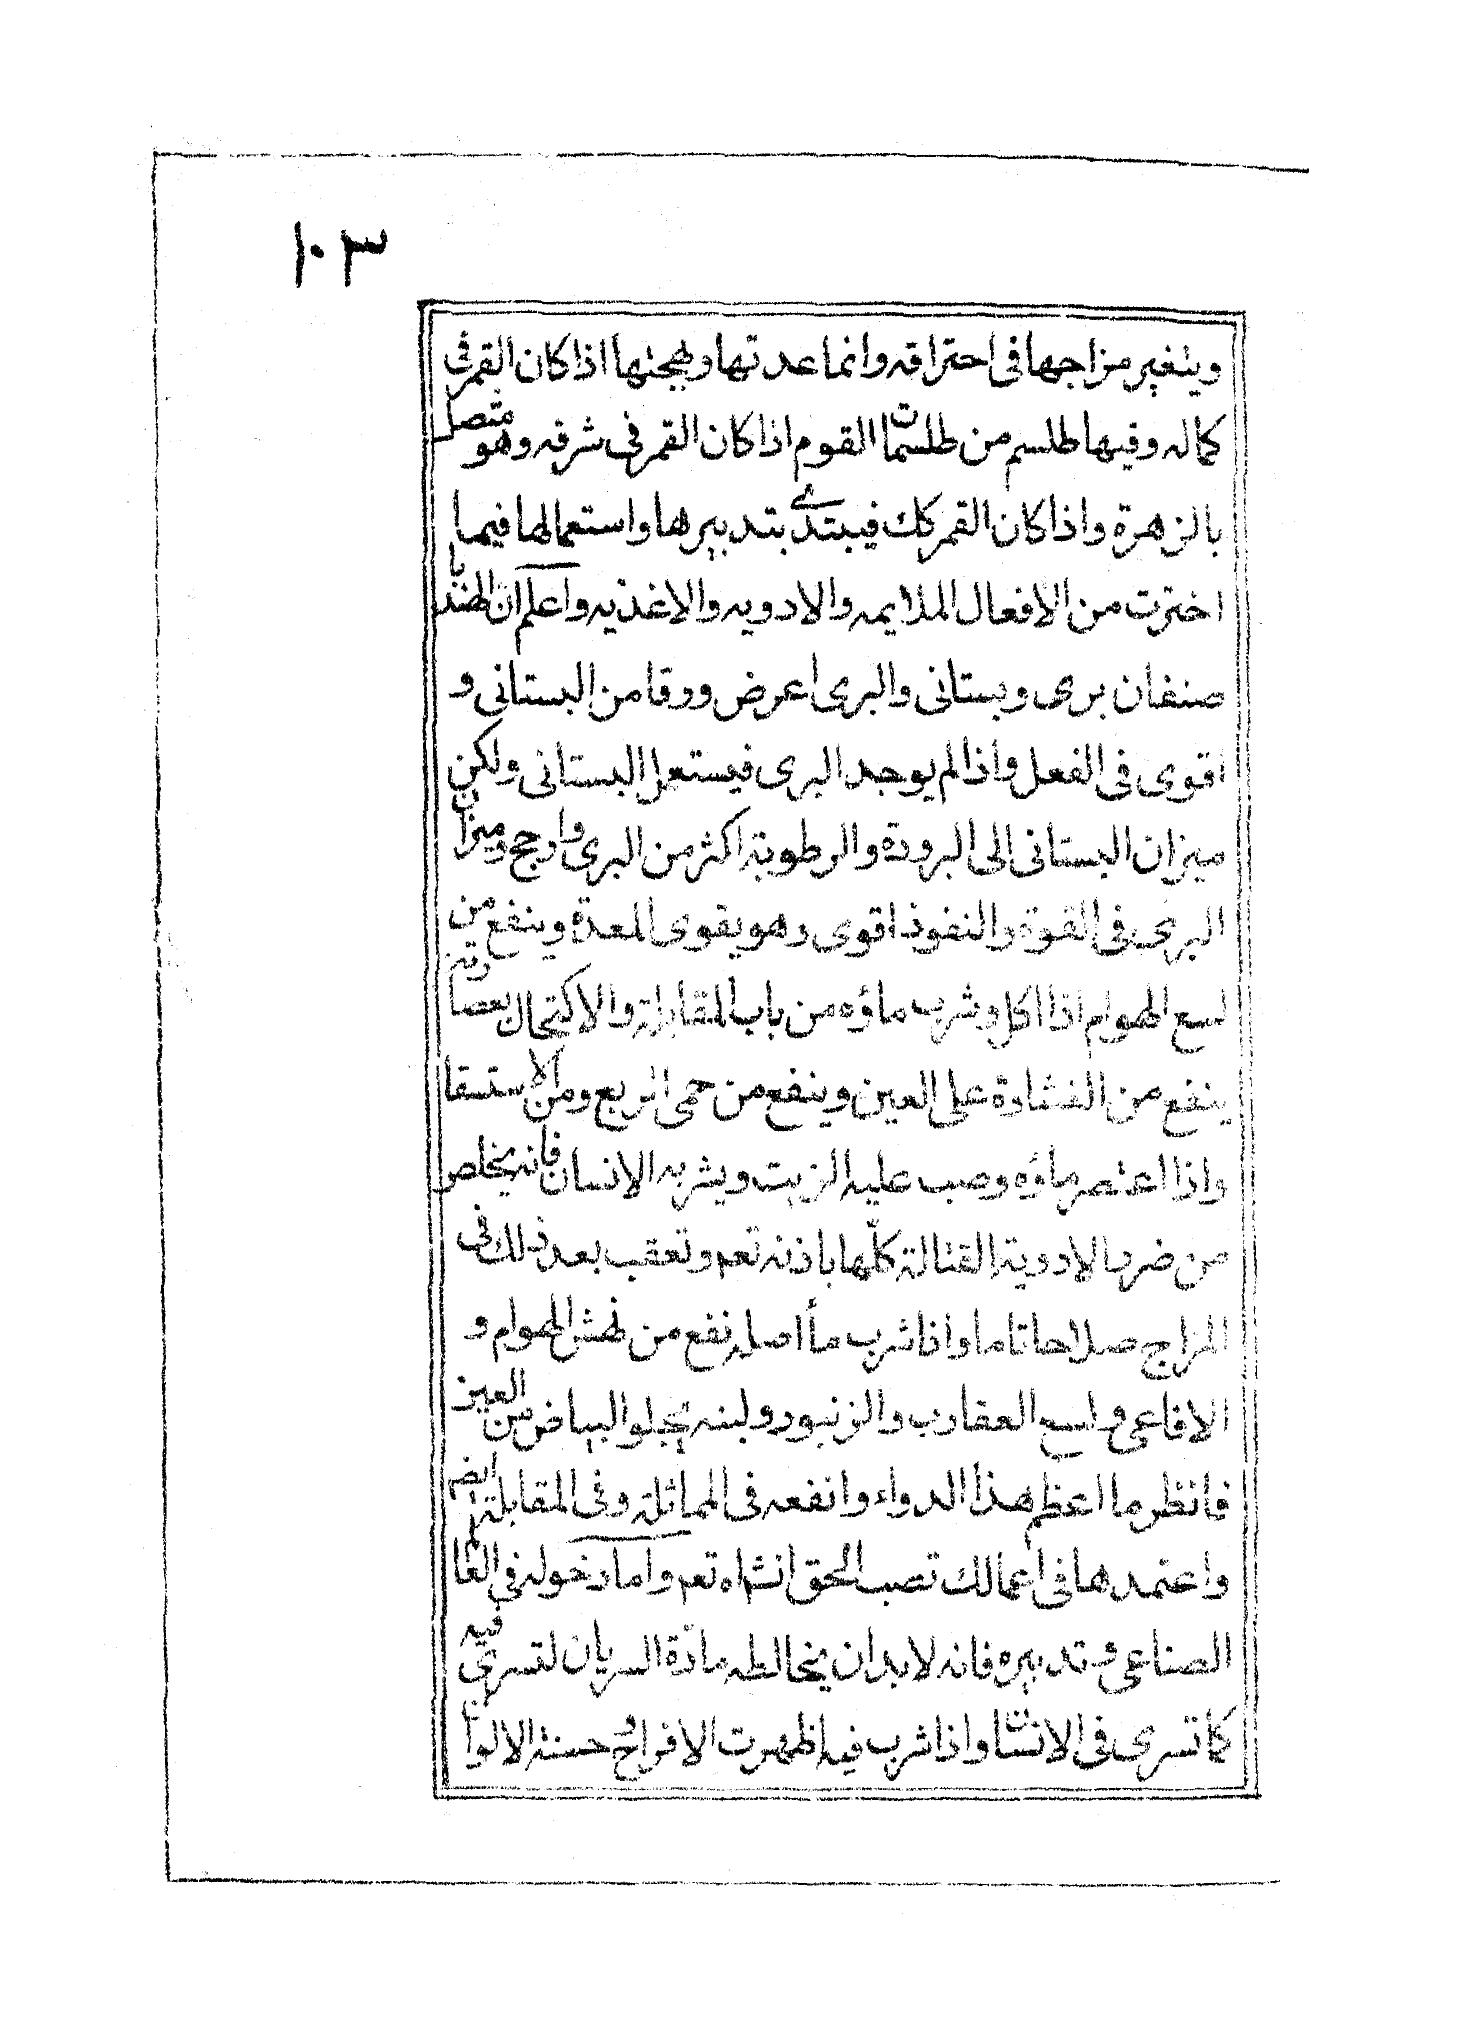 ١٠٣
ويتغير مزاجها فى احتراقه وانما عدتها وبهجتها اذا كان القمر فى
كماله وفيها طلسم من طلسمات القوم اذا كان القمر فى شرفه وهو متصل
بالزهرة واذا كان القمر كك فيبتدى بتدبيرها واستعمالها فيما
اخترت من الافعال الملايمه والادويه والاغذيه واعلم ان الهندبا
صنفان برى وبستانى والبرى اعرض ورقا من البستانى و
اقوى فى الفعل واذا لم يوجد البرى فيستعمل البستانى ولكن
ميزان البستانى الى البرودة والرطوبة اكثر من البرى وارجح وميزان
البرى فى القوة والنفوذ اقوى وهو يقوى المعدة وينفع من
لسع الهوام اذا اكل وشرب ماؤه من باب المقابلة والاكتحال بعصارته
ينفع من الغشاوة على العين وينفع من حمى الربع ومن الاستسقا
واذا اعتصر ماؤه وصب عليه الزيت ويشربه الانسان فانه يخلص
من ضرر الادوية القتالة كلها باذنه تعم وتعقب بعد ذلك فى
المزاج صلاحا تاما واذا شرب ماء اصله نفع من نهش الهوام و
الافاعى ولسع العقارب والزنبور ولبنه يجلو البياض من العين
فانظر ما اعظم هذا الدواء وانفعه فى المماثلة وفى المقابلة ايضم
واعتمدها فى اعمالك تصب الحق انشاه تعم واما دخوله فى العالم
الصناعى وتدبيره فانه لابد ان يخالطه مادّة السريان لتسرى فيه
كما تسرى فى الانسان واذا شرب فيه اظهرت الافراح حسنة الالوان